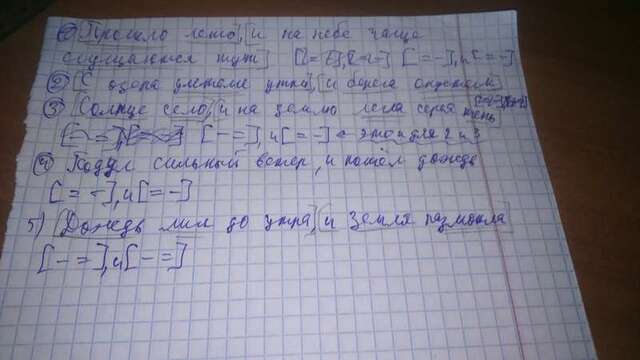 ① [Прошло лето], [и на небе чаще
сгущаются туч] [= -], и [= -]
② [С озера улетели утки], [и берега опустели]
③ [Солнце село], [и на землю легла серая тень
[- =], и [= -] ← это для 2 и 3
④ Подул сильный ветер, и пошёл дождь
[= -], и [= -]
5) [Дождь лил до утра], [и земля размокла]
[- =], и [- =]